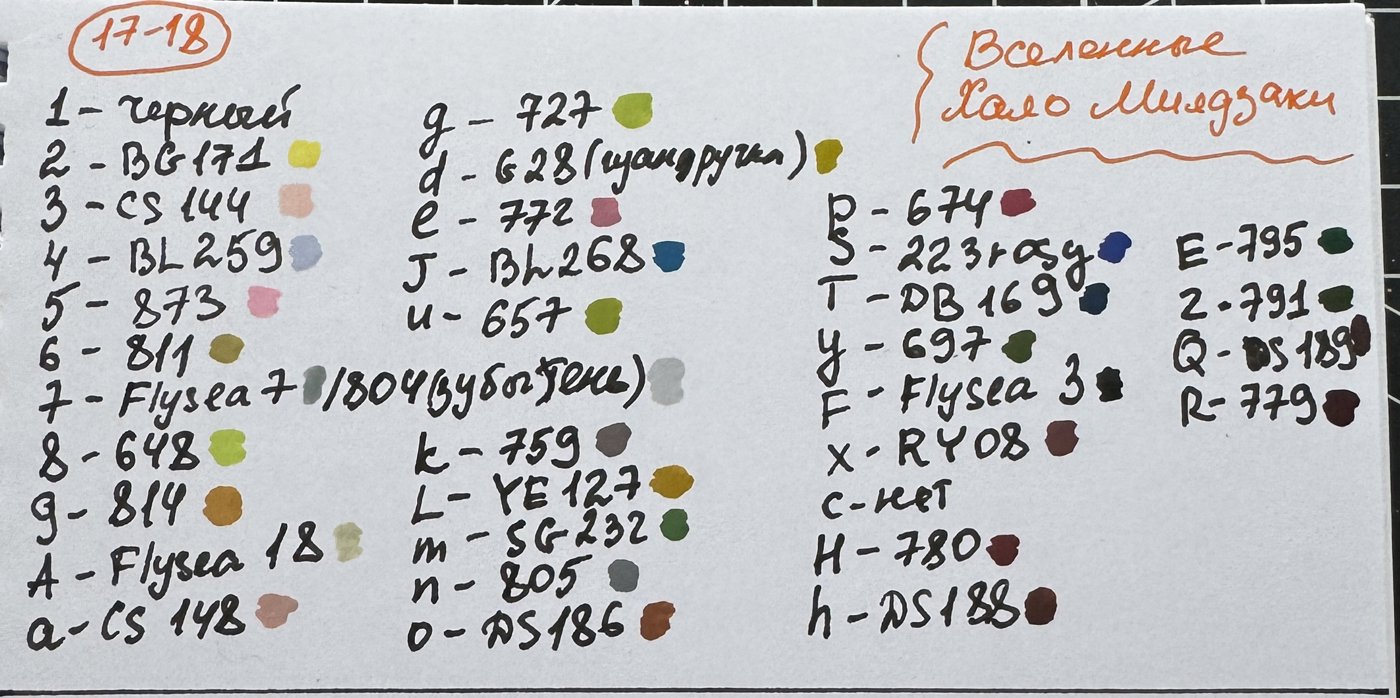 17-18
Вселенные
Хаяо Миядзаки
1 - черный
2 - BG171
3 - CS 144
4 - BL259
5 - 873
6 - 811
7 - Flysea 7 /804 (зубы, тень)
8 - 648
9 - 814
A - Flysea 18
a - CS 148
g - 727
d - G28 (щандручка)
e - 772
J - BL268
u - 657
k - 759
L - YE127
m - SG232
n - 805
o - DS186
p - 674
S - 223 rosy
T - DB169
y - 697
F - Flysea 3
x - RY08
c - нет
H - 780
h - DS188
E - 795
Z - 791
Q - DS189
R - 779